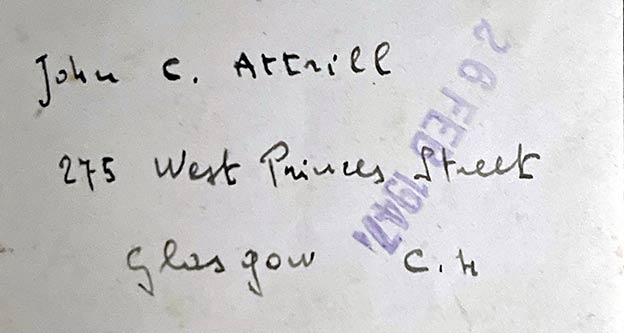 John C. Attrill
275 West Princes Street
Glasgow C.4
26 FEB 1947